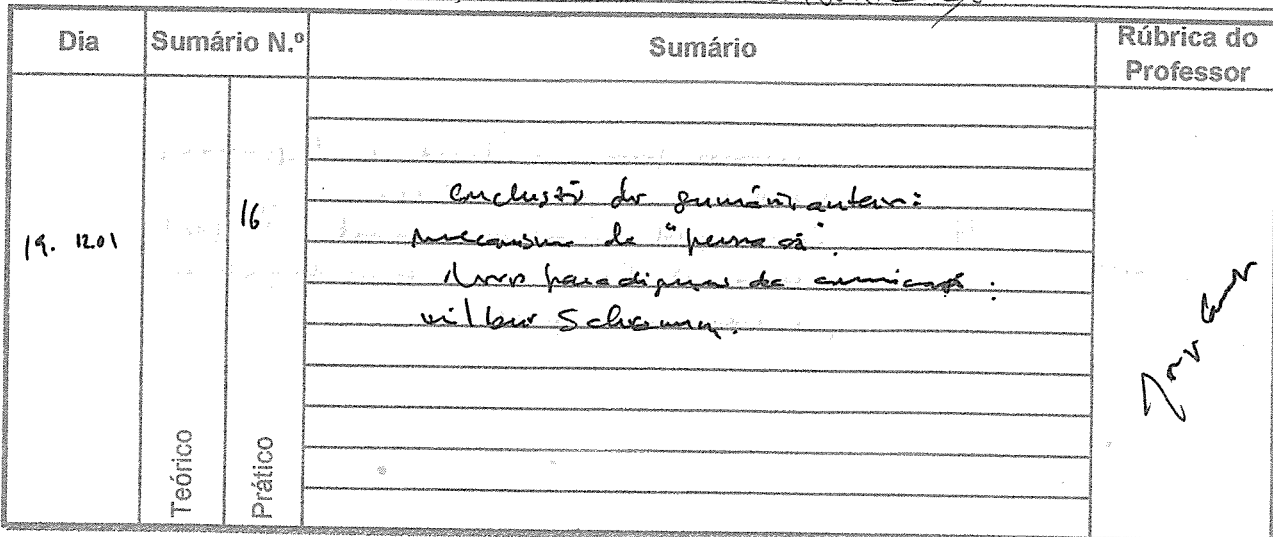 Dia
Sumário N.º
Sumário
Rúbrica do
Professor
19. 12.01
16
Conclusão do sumário anterior:
mecanismo de "persuasão".
Novos paradigmas da comunicação:
Wilbur Schramm.
Teórico
Prático